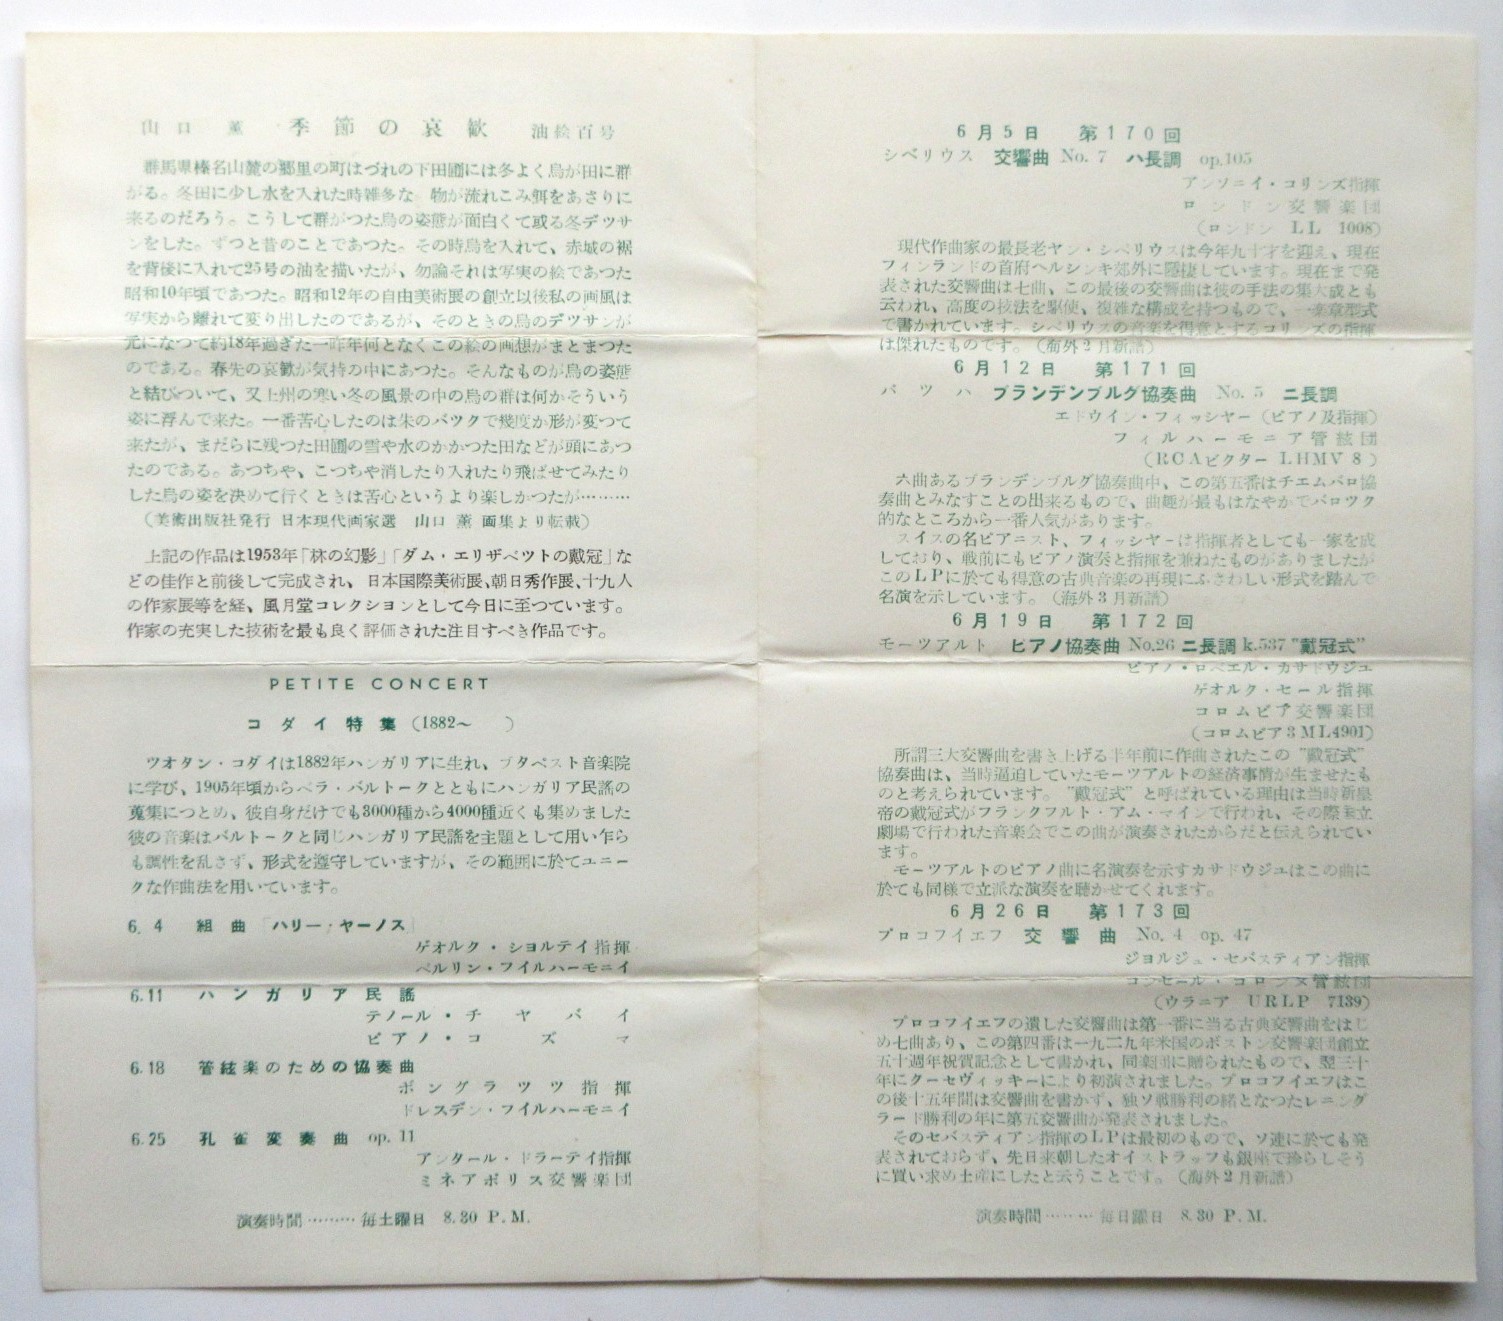 山口 薫 季節の哀歓 油絵百号
群馬県榛名山麓の郷里の町はづれの下田圃には冬よく烏が田に群
がる。冬田に少し水を入れた時雑多な 物が流れこみ餌をあさりに
来るのだろう。こうして群がつた烏の姿態が面白くて或る冬デツサ
ンをした。ずつと昔のことであつた。その時烏を入れて、赤城の裾
を背後に入れて25号の油を描いたが、勿論それは写実の絵であつた
昭和10年頃であつた。昭和12年の自由美術展の創立以後私の画風は
写実から離れて変り出したのであるが、そのときの烏のデツサンが
元になつて約18年過ぎた一昨年何となくこの絵の画想がまとまつた
のである。春先の哀歓が気持の中にあつた。そんなものが烏の姿態
と結びついて、又上州の寒い冬の風景の中の烏の群は何かそういう
姿に浮んで来た。一番苦心したのは朱のバツクで幾度か形が変つて
来たが、まだらに残つた田圃の雪や水のかかつた田などが頭にあつ
たのである。あつちや、こつちや消したり入れたり飛ばせてみたり
した烏の姿を決めて行くときは苦心というより楽しかつたが………
(美術出版社発行 日本現代画家選 山口 薫 画集より転載)
上記の作品は1953年「林の幻影」「ダム・エリザベツトの戴冠」な
どの佳作と前後して完成され、日本国際美術展、朝日秀作展、十九人
の作家展等を経、風月堂コレクションとして今日に至つています。
作家の充実した技術を最も良く評価された注目すべき作品です。
PETITE CONCERT
コダイ特集 (1882〜 )
ツオタン・コダイは1882年ハンガリアに生れ、ブタペスト音楽院
に学び、1905年頃からベラ・バルトークとともにハンガリア民謡の
蒐集につとめ、彼自身だけでも3000種から4000種近くも集めました
彼の音楽はバルトークと同じハンガリア民謡を主題として用い乍ら
も調性を乱さず、形式を遵守していますが、その範囲に於てユニー
クな作曲法を用いています。
6. 4 組曲「ハリー・ヤーノス」
ゲオルク・ショルテイ指揮
ベルリン・フイルハーモニイ
6.11 ハンガリア民謡
テノール・チヤバイ
ピアノ・コズマ
6.18 管絃楽のための協奏曲
ボングラツツ指揮
ドレスデン・フイルハーモニイ
6.25 孔雀変奏曲 op. 11
アンタール・ドラーテイ指揮
ミネアポリス交響楽団
演奏時間………毎土曜日 8.30 P.M.
6月5日 第170回
シベリウス 交響曲 No. 7 ハ長調 op.105
アンソニイ・コリンズ指揮
ロンドン交響楽団
(ロンドン LL 1008)
現代作曲家の最長老ヤン・シベリウスは今年九十才を迎え、現在
フィンランドの首府ヘルシンキ郊外に隠棲しています。現在まで発
表された交響曲は七曲、この最後の交響曲は彼の手法の集大成とも
云われ、高度の技法を駆使、複雑な構成を持つもので、一楽章型式
で書かれています。シベリウスの音楽を得意とするコリンズの指揮
は傑れたものです。(海外2月新譜)
6月12日 第171回
バツハ ブランデンブルグ協奏曲 No. 5 ニ長調
エドウイン・フィッシヤー(ピアノ及指揮)
フィルハーモニア管絃団
(RCAビクター LHMV 8)
六曲あるブランデンブルグ協奏曲中、この第五番はチエムバロ協
奏曲とみなすことの出来るもので、曲趣が最もはなやかでバロツク
的なところから一番人気があります。
スイスの名ピアニスト、フィッシヤーは指揮者としても一家を成
しており、戦前にもピアノ演奏と指揮を兼ねたものがありましたが
このLPに於ても得意の古典音楽の再現にふさわしい形式を踏んで
名演を示しています。(海外3月新譜)
6月19日 第172回
モーツアルト ピアノ協奏曲 No.26 ニ長調 k.537 "戴冠式"
ピアノ・ロベエル・カサドウジユ
ゲオルク・セール指揮
コロムビア交響楽団
(コロムビア3ML4901)
所謂三大交響曲を書き上げる半年前に作曲されたこの "戴冠式"
協奏曲は、当時逼迫していたモーツアルトの経済事情が生ませたも
のと考えられています。"戴冠式" と呼ばれている理由は当時新皇
帝の戴冠式がフランクフルト・アム・マインで行われ、その際国立
劇場で行われた音楽会でこの曲が演奏されたからだと伝えられてい
ます。
モーツアルトのピアノ曲に名演奏を示すカサドウジユはこの曲に
於ても同様で立派な演奏を聴かせてくれます。
6月26日 第173回
プロコフイエフ 交響曲 No. 4 op. 47
ジョルジュ・セバスティアン指揮
コンセール・コロンヌ管絃団
(ウラニア URLP 7139)
プロコフイエフの遺した交響曲は第一番に当る古典交響曲をはじ
め七曲あり、この第四番は一九二九年米国のボストン交響楽団創立
五十週年祝賀記念として書かれ、同楽団に贈られたもので、翌三十
年にクーセヴィッキーにより初演されました。プロコフイエフはこ
の後十五年間は交響曲を書かず、独ソ戦勝利の緒となつたレニング
ラード勝利の年に第五交響曲が発表されました。
そのセバスティアン指揮のLPは最初のもので、ソ連に於ても発
表されておらず、先日来朝したオイストラッフも銀座で珍らしそう
に買い求め土産にしたと云うことです。(海外2月新譜)
演奏時間………毎日曜日 8.30 P.M.